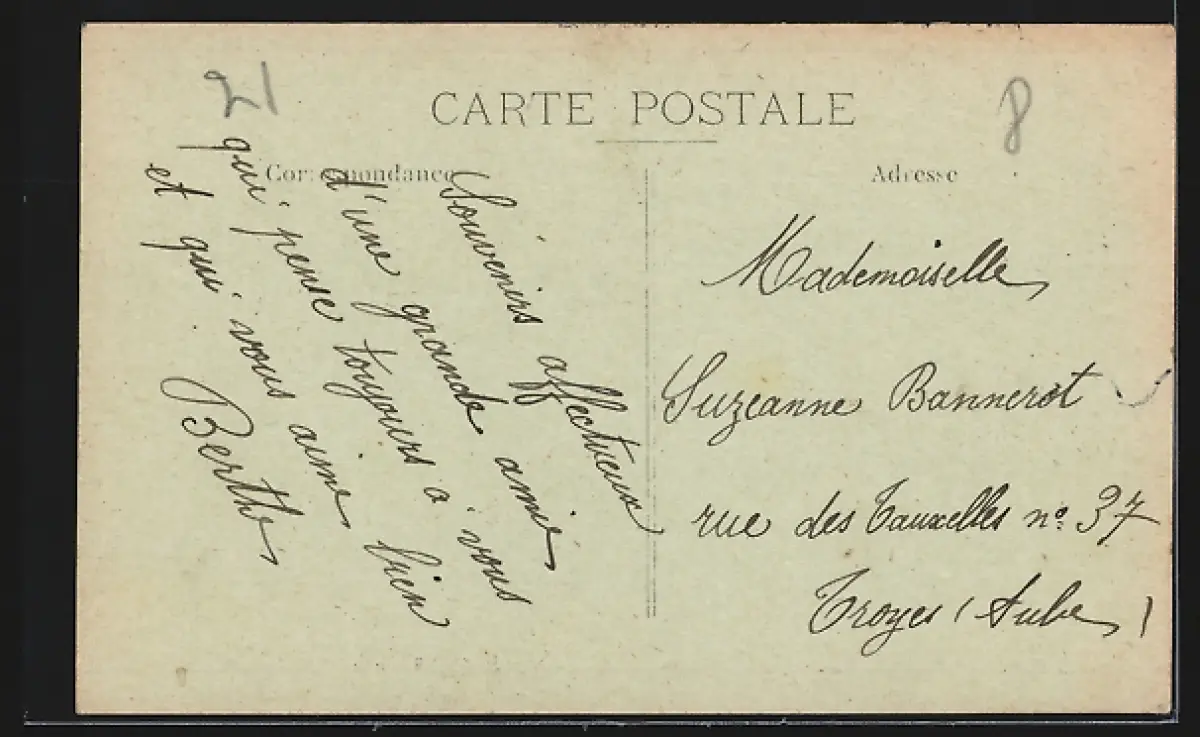 21
8
CARTE POSTALE
Correspondance
Adresse
Souvenirs affectueux
d'une grande amie
qui pense toujours à vous
et qui vous aime bien
Berthe
Mademoiselle
Suzeanne Bannerot
rue des Tauxelles nº 37
Troyes (Aube)